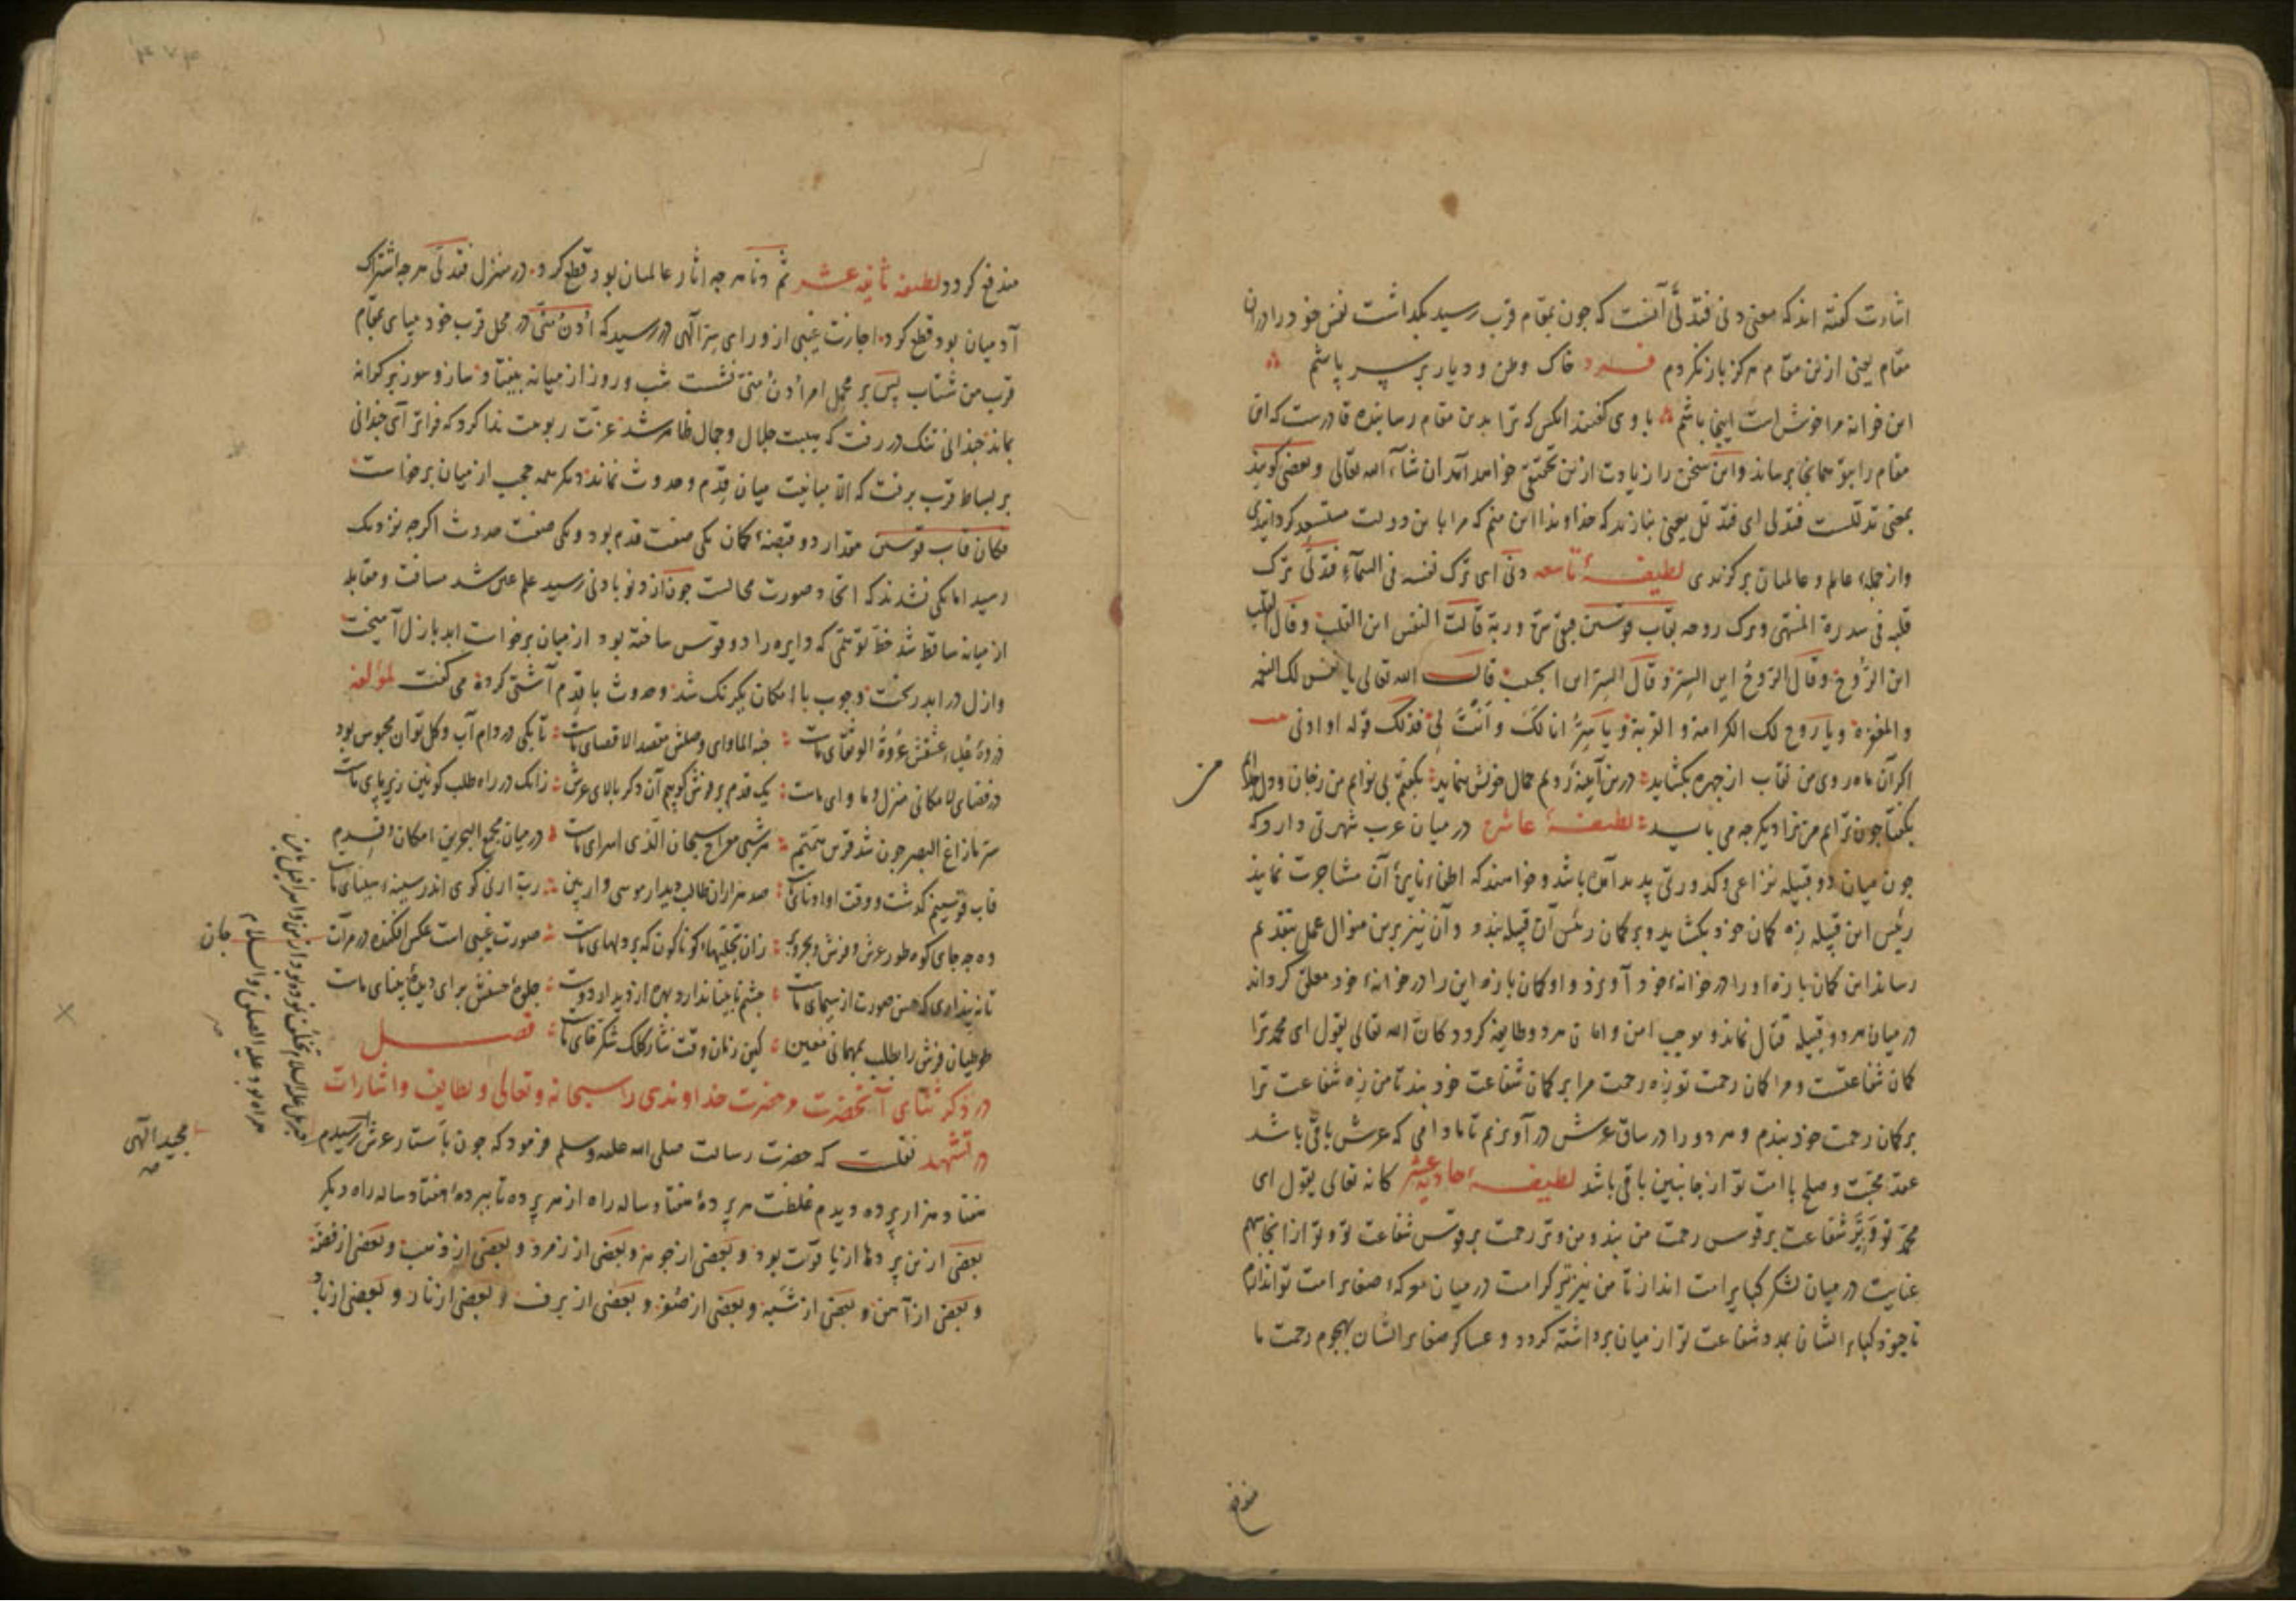 اشارت کفته اند که معنی دنی فتدلی آنست که جون بمقام قرب رسید بکداشت نفس خود را دران
مقام یعنی ازین مقام هرکز باز نکردم فرد خاک وطن و دیار بر سر پاشم
این خرابه مرا خوش است اینجا باشم با وی کفتند آنکس که ترا بدین مقام رسانیده قادرست که این
مقام را بتو همانجا برساند واین سخن را زیادت ازین تحقیقی خواهد آمد ان شآء الله تعالی وبعضی کویند
بمعنی تدللست فتدلی ای فتدلل یعنی بنازید که خداوندا این منم که مرا باین دولت مستسعد کردانیدی
واز جمله عالم و عالمیان برکزیدی لطیفۀ تاسعه دنی ای ترک نفسه فی السمآء فتدلی ترک
قلبه فی سدرة المنتهی وترک روحه بقاب قوسین فبقی سره وربه قالت النفس این القلب وقال القلب
این الروح وقال الروح این السر وقال السر این الحبیب قال الله تعالی یا نفس لک النعمة
والمغفرة ویا روح لک الکرامة والقربة ویا سر انا لک وانت لی فذلک قوله او ادنی
اکر آن ماه روی من نقاب از جهره بکشاید درین آیینۀ رویم جمال خویش بنماید بکفتم بی نوایم من زجان ودل
بکفتا جون ترایم من ترا دیکر جه می باید لطیفۀ عاشره در میان عرب شهرتی دارد که
جون میان دو قبیله نزاعی وکدورتی پدید آمده باشد وخواهند که اطفاء نایرۀ آن مشاجرت نمایند
رئیس این قبیله زه کمان خود بکشاید وبر کمان رئیس آن قبیله بندد وآن نیز برین منوال عمل بتقدیم
رساند این کمان با زه او را در خوانۀ خود آویزد و او کمان با زه این را در خوانۀ خود معلق کرداند
در میان هر دو قبیله قتال نماند و موجب امن وامان هر دو طایفه کردد کان الله تعالی یقول ای محمد ترا
کمان شفاعتست ومرا کمان رحمت تو زه رحمت مرا بر کمان شفاعت خود بند تا من زه شفاعت ترا
بر کمان رحمت خود بندم وهر دو را در ساق عرش در آویزم تا مادامی که عرش باقی باشد
عقد محبت وصلح با امت تو از جانبین باقی باشد لطیفۀ حادیه عشر کانه تعالی یقول ای
محمد تو وتر شفاعت بر قوس رحمت من بند ومن وتر رحمت بر قوس شفاعت تو وتو از اینجا سهم
عنایت در میان لشکر کبایر امت انداز تا من نیز تیر کرامت در میان معرکۀ صغایر امت تو اندازم
تا جنود کبایر ایشان بمدد شفاعت تو از میان برداشته کردد وعساکر صغایر ایشان بهجوم رحمت ما
مندفع
مندفع کردد لطیفۀ ثانیه عشر ثم دنا هر جه اثار عالمیان بود قطع کرد در منزل فتدلی هر جه اشتراک
آدمیان بود قطع کرد اجازت غیبی از ورای سر الهی در رسید که ادن منی در محل قرب خود میای بمقام
قرب من شتاب پس بر محمل امر ادن منی نشست شب وروز از میانه بیفتاد ساز وسوز بر کرانه
بماند جندانی تنک در رفت که هیبت جلال وجمال ظاهر شد عزت ربوبیت ندا کرد که فراتر آی جندانی
بر بساط قرب برفت که الا مباینت میان قدم وحدوث نماند دیکر همه حجب از میان برخاست
فکان قاب قوسین مقدار دو قبضۀ کمان یکی صفت قدم بود ویکی صفت حدوث اکرچه نزدیک
رسید اما یکی نشدند که اتحاد صورت محالست جون از دنو با دنی رسید علم عین شد مسافت ومقابله
از میانه ساقط شد خط توهمی که دایره را دو قوس ساخته بود از میان برخاست ابد بازل آمیخت
وازل در ابد ریخت وجوب با امکان یکرنک شد وحدوث با قدم آشتی کرده می کفت لمؤلفه
ذروۀ علیاء عشقش عروة الوثقای ماست جنة الماوای وصلش مقصد الاقصای ماست تا بکی در دام آب وکل توان محبوس بود
در فضای لا مکانی منزل وماوای ماست یک قدم بر فرش کوییم آن دکر بالای عرش زانک در راه طلب کونین زیر پای ماست
سر مازاغ البصر جون شد قرین همتم هر شبی معراج سبحان الذی اسرای ماست در میان مجمع البحرین امکان وقدم
قاب قوسینم کذشت ووقت او ادنای ماست صد هزاران طالب دیدار موسی وار بین رب ارنی کوی اندر سینۀ سینای ماست
ده جه جای کوه طور عرش وفرش وبحر وبر زان تجلیهاء کوناکون که بر دلهای ماست صورت غیبی است عکس افکنده در مرآت جان
تا نه پنداری که حسن صورت از سیمای ماست جشم نابینا ندارد بهره از دیدار دوست جلوۀ حسنش برای دیدۀ بینای ماست
طوطیان عرش را بطلب بمهمانی معین کین زمان وقت نثار کلک شکرخای ماست فصل
در ذکر ثنای آنحضرت مر حضرت خداوندی را سبحانه وتعالی ولطایف واشارات
در تشهد نقلست که حضرت رسالت صلی الله علیه وسلم فرمود که جون بآستار عرش رسیدم
هفتاد هزار پرده دیدم غلظت هر پردۀ هفتاد ساله راه از هر پرده تا بپردۀ هفتاد ساله راه دیکر
بعضی ازین پردها از یاقوت بود وبعضی از جوهر وبعضی از زمرد وبعضی از ذهب وبعضی از فضه
وبعضی از آهن وبعضی از شبه وبعضی از ضوء وبعضی از برف وبعضی از نار وبعضی از باد
جبریل علیه السلام تخلف نموده بود ازمن واسرافیل
همراه بود علیه الصلوة والسلام
مجید الهی